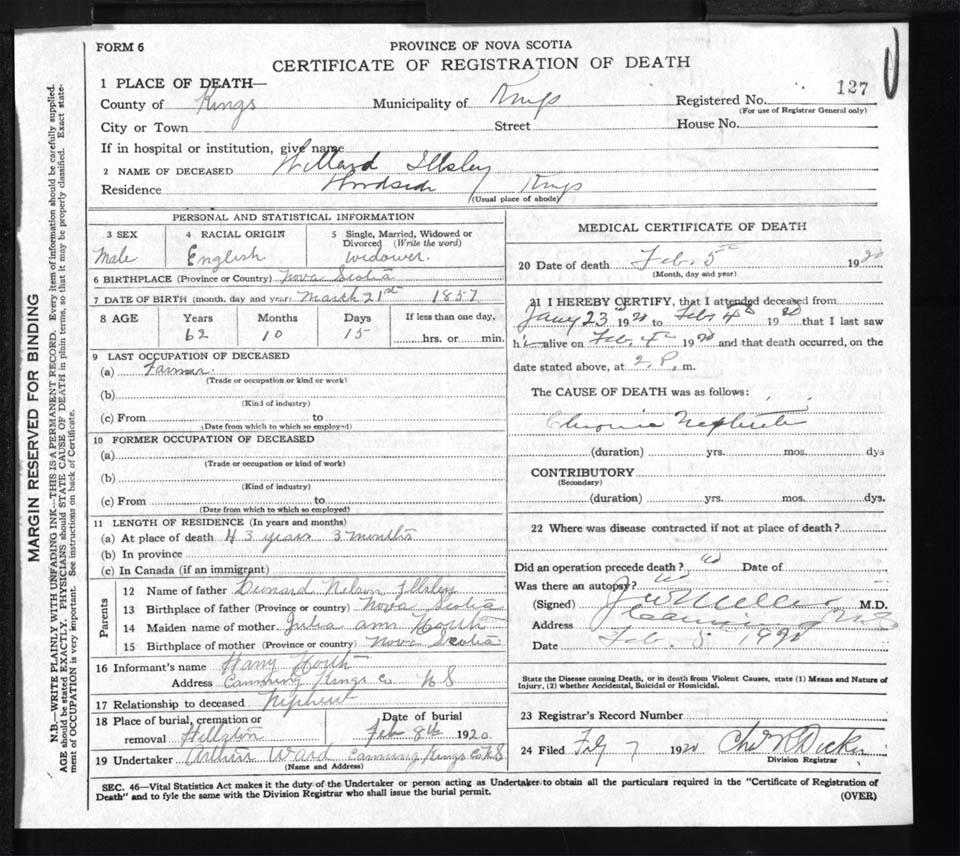 FORM 6
PROVINCE OF NOVA SCOTIA
CERTIFICATE OF REGISTRATION OF DEATH
127
1 PLACE OF DEATH—
County of Kings Municipality of Kings Registered No.
(For use of Registrar General only)
City or Town Street House No.
If in hospital or institution, give name
2 NAME OF DECEASED Willard Illsley
Residence Woodside Kings
(Usual place of abode)
PERSONAL AND STATISTICAL INFORMATION
3 SEX 4 RACIAL ORIGIN 5 Single, Married, Widowed or Divorced (Write the word)
Male English Widower.
6 BIRTHPLACE (Province or Country) Nova Scotia
7 DATE OF BIRTH (month, day and year) March 21st 1857
8 AGE Years Months Days If less than one day,
62 10 15 hrs. or min.
9 LAST OCCUPATION OF DECEASED
(a) Farmer.
(Trade or occupation or kind or work)
(b)
(Kind of industry)
(c) From to
(Date from which to which so employed)
10 FORMER OCCUPATION OF DECEASED
(a)
(Trade or occupation or kind of work)
(b)
(Kind of industry)
(c) From to
(Date from which to which so employed)
11 LENGTH OF RESIDENCE (In years and months)
(a) At place of death 43 years 3 months
(b) In province
(c) In Canada (if an immigrant)
Parents
12 Name of father Nelson Illsley
13 Birthplace of father (Province or country) Nova Scotia
14 Maiden name of mother. Julia Ann
15 Birthplace of mother (Province or country) Nova Scotia
16 Informant's name Harry
Address Canning Kings Co N S
17 Relationship to deceased Nephew
18 Place of burial, cremation or removal Hillaton Date of burial Feb 8th 1920
19 Undertaker Arthur Ward Canning Kings Co N S
(Name and Address)
MEDICAL CERTIFICATE OF DEATH
20 Date of death Feb. 5th 1920
(Month, day and year)
21 I HEREBY CERTIFY, that I attended deceased from
Jany 23rd 1920 to Feby 4th 1920 that I last saw
h alive on Feb. 4th 1920 and that death occurred, on the
date stated above, at 2 P. m.
The CAUSE OF DEATH was as follows:
Chronic Nephritis
(duration) yrs. mos. dys
CONTRIBUTORY
(Secondary)
(duration) yrs. mos. dys.
22 Where was disease contracted if not at place of death?
Did an operation precede death? no Date of
Was there an autopsy? no
(Signed) J W Miller M.D.
Address Canning N.S.
Date Feb. 5 1920
State the Disease causing Death, or in death from Violent Causes, state (1) Means and Nature of
Injury, (2) whether Accidental, Suicidal or Homicidal.
23 Registrar's Record Number
24 Filed Feby 7 1920 Chas R Dickie
Division Registrar
SEC. 46—Vital Statistics Act makes it the duty of the Undertaker or person acting as Undertaker to obtain all the particulars required in the "Certificate of Registration of
Death" and to fyle the same with the Division Registrar who shall issue the burial permit.
(OVER)
MARGIN RESERVED FOR BINDING
N.B.—WRITE PLAINLY WITH UNFADING INK—THIS IS A PERMANENT RECORD. Every item of information should be carefully supplied.
AGE should be stated EXACTLY. PHYSICIANS should STATE CAUSE OF DEATH in plain terms, so that it may be properly classified. Exact state-
ment of OCCUPATION is very important. See instructions on back of Certificate.